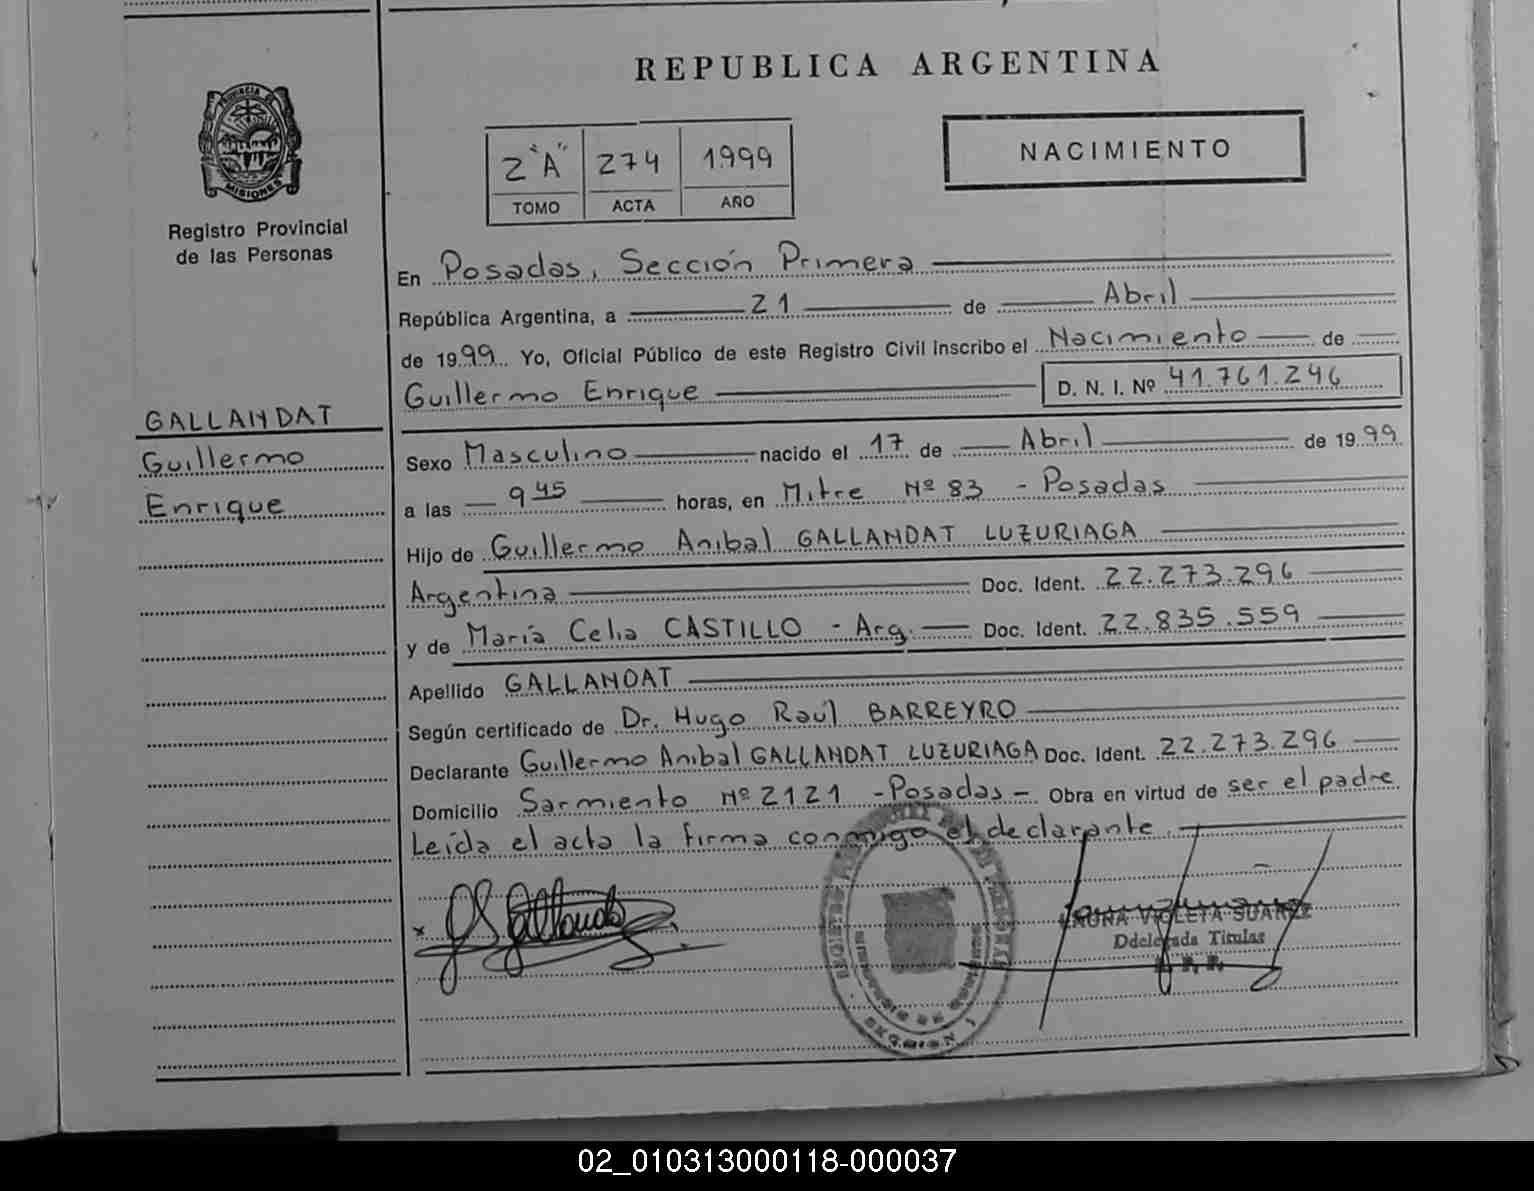 REPUBLICA ARGENTINA
PROVINCIA DE
MISIONES
Registro Provincial
de las Personas
2 "A" 274 1999
TOMO ACTA AÑO
NACIMIENTO
En Posadas, Sección Primera
República Argentina, a 21 de Abril
de 1999 Yo, Oficial Público de este Registro Civil inscribo el Nacimiento de
Guillermo Enrique D. N. I. Nº 41.761.246
GALLANDAT
Guillermo
Enrique
Sexo Masculino nacido el 17 de Abril de 1999
a las 9 45 horas, en Mitre Nº 83 - Posadas
Hijo de Guillermo Anibal GALLANDAT LUZURIAGA
Argentina Doc. Ident. 22.273.296
y de María Celia CASTILLO - Arg. Doc. Ident. 22.835.559
Apellido GALLANDAT
Según certificado de Dr. Hugo Raúl BARREYRO
Declarante Guillermo Anibal GALLANDAT LUZURIAGA Doc. Ident. 22.273.296
Domicilio Sarmiento Nº 2121 - Posadas - Obra en virtud de ser el padre
Leída el acta la firma conmigo el declarante.
LAURA VIOLETA SUAREZ
Ddelegada Titular
02_010313000118-000037